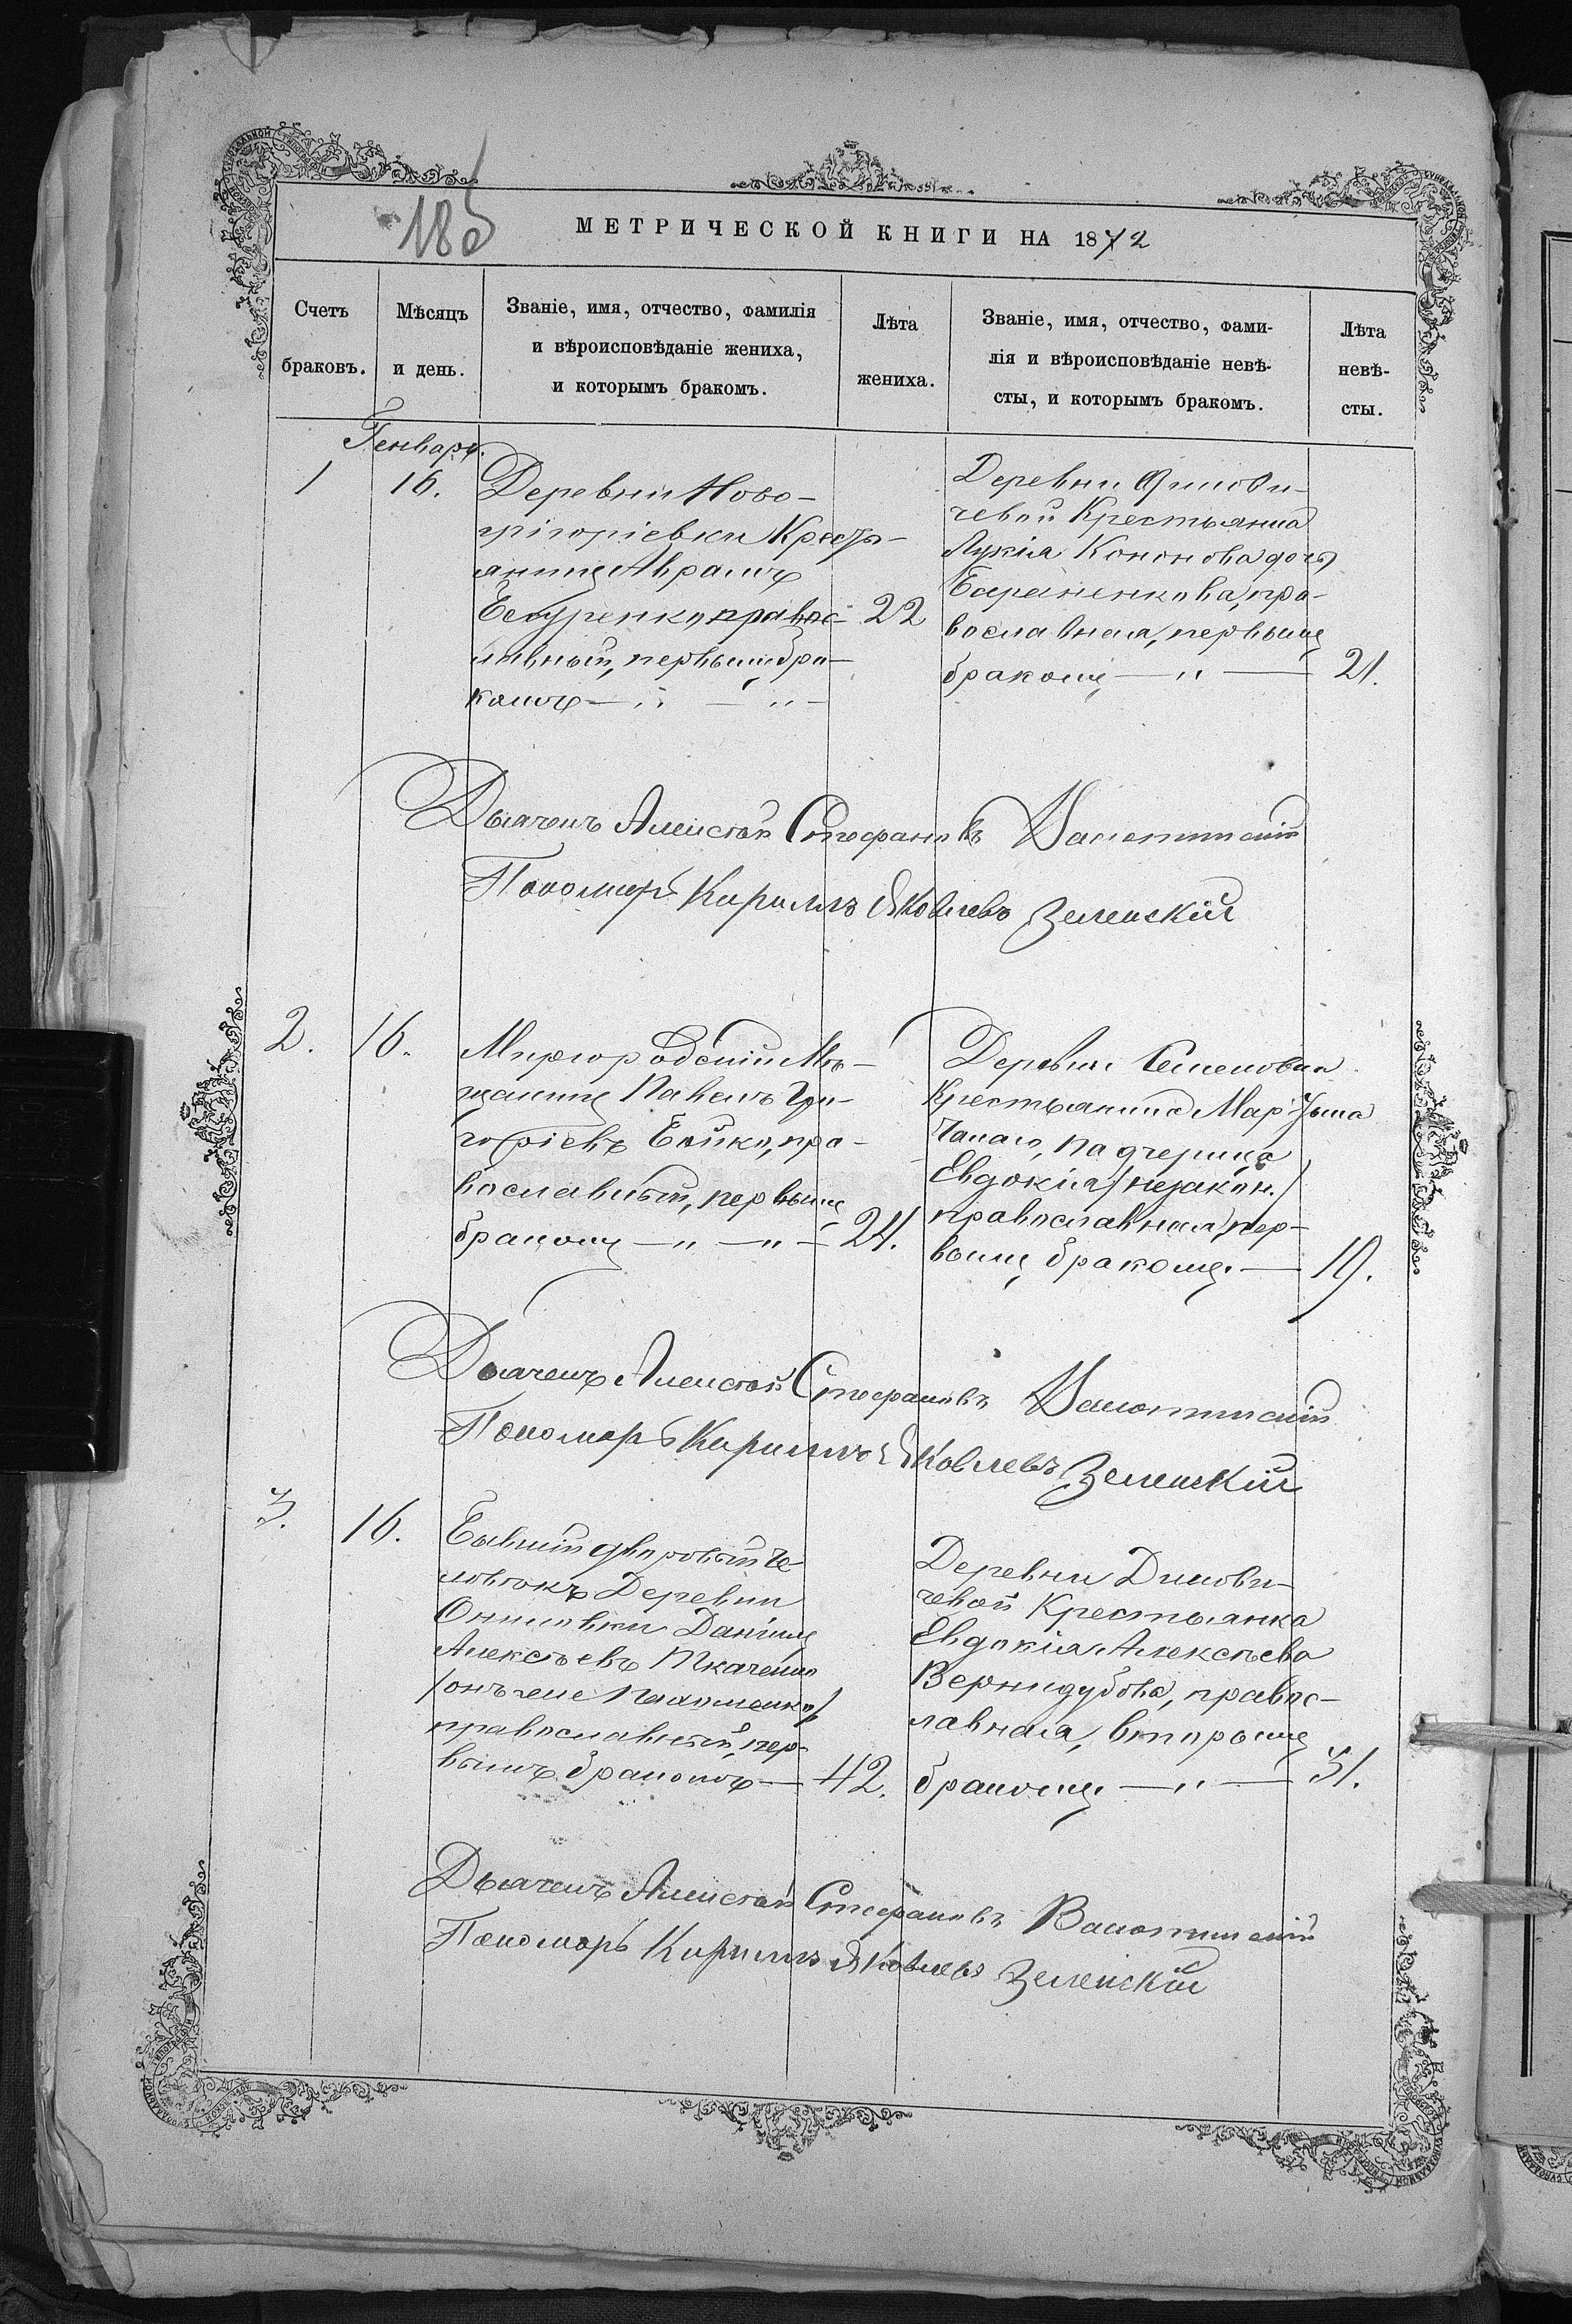 185
МЕТРИЧЕСКОЙ КНИГИ НА 1872
Счетъ браковъ.
Мѣсяцъ и день.
Званіе, имя, отчество, фамилія
и вѣроисповѣданіе жениха,
и которымъ бракомъ.
Лѣта жениха.
Званіе, имя, отчество, фами-
лія и вѣроисповѣданіе невѣ-
сты, и которымъ бракомъ.
Лѣта невѣ-
сты.
Генварь.
1
16.
Деревни Ново-
григоріевки Кресть-
янинъ Аврамъ
православ-
ленный, первымъ бра-
комъ
22
Деревни
чевой Крестьянка
Лукія Кононова дочь
Бараненкова, пра-
вославная, первымъ
бракомъ
21.
Дьячекъ Алексѣй Стефановъ
Пономарь Кириллъ Яковлевъ Зеленскій
2.
16.
Миргородскій Мѣ-
щанинъ Павелъ Гри-
горіевъ Бойко, пра-
вославный, первымъ
бракомъ
24.
Деревни Семеновки
Крестьянина Мартына
падчерица
Евдокія /незакон./
православная, пер-
вымъ бракомъ.
19.
Дьячекъ Алексѣй Стефановъ
Пономарь Кириллъ Яковлевъ Зеленскій
3.
16.
Бывшій дворовый Че-
ловѣкъ Деревни
Ониловки Даніилъ
Алексѣевъ Ткаченко
/онъ же
православный, пер-
вымъ бракомъ
42.
Деревни Димови-
чевой Крестьянка
Евдокія Алексѣева
Вернидубова, правос-
лавная, вторымъ
бракомъ
31.
Дьячекъ Алексѣй Стефановъ
Пономарь Кириллъ Яковлевъ Зеленскій